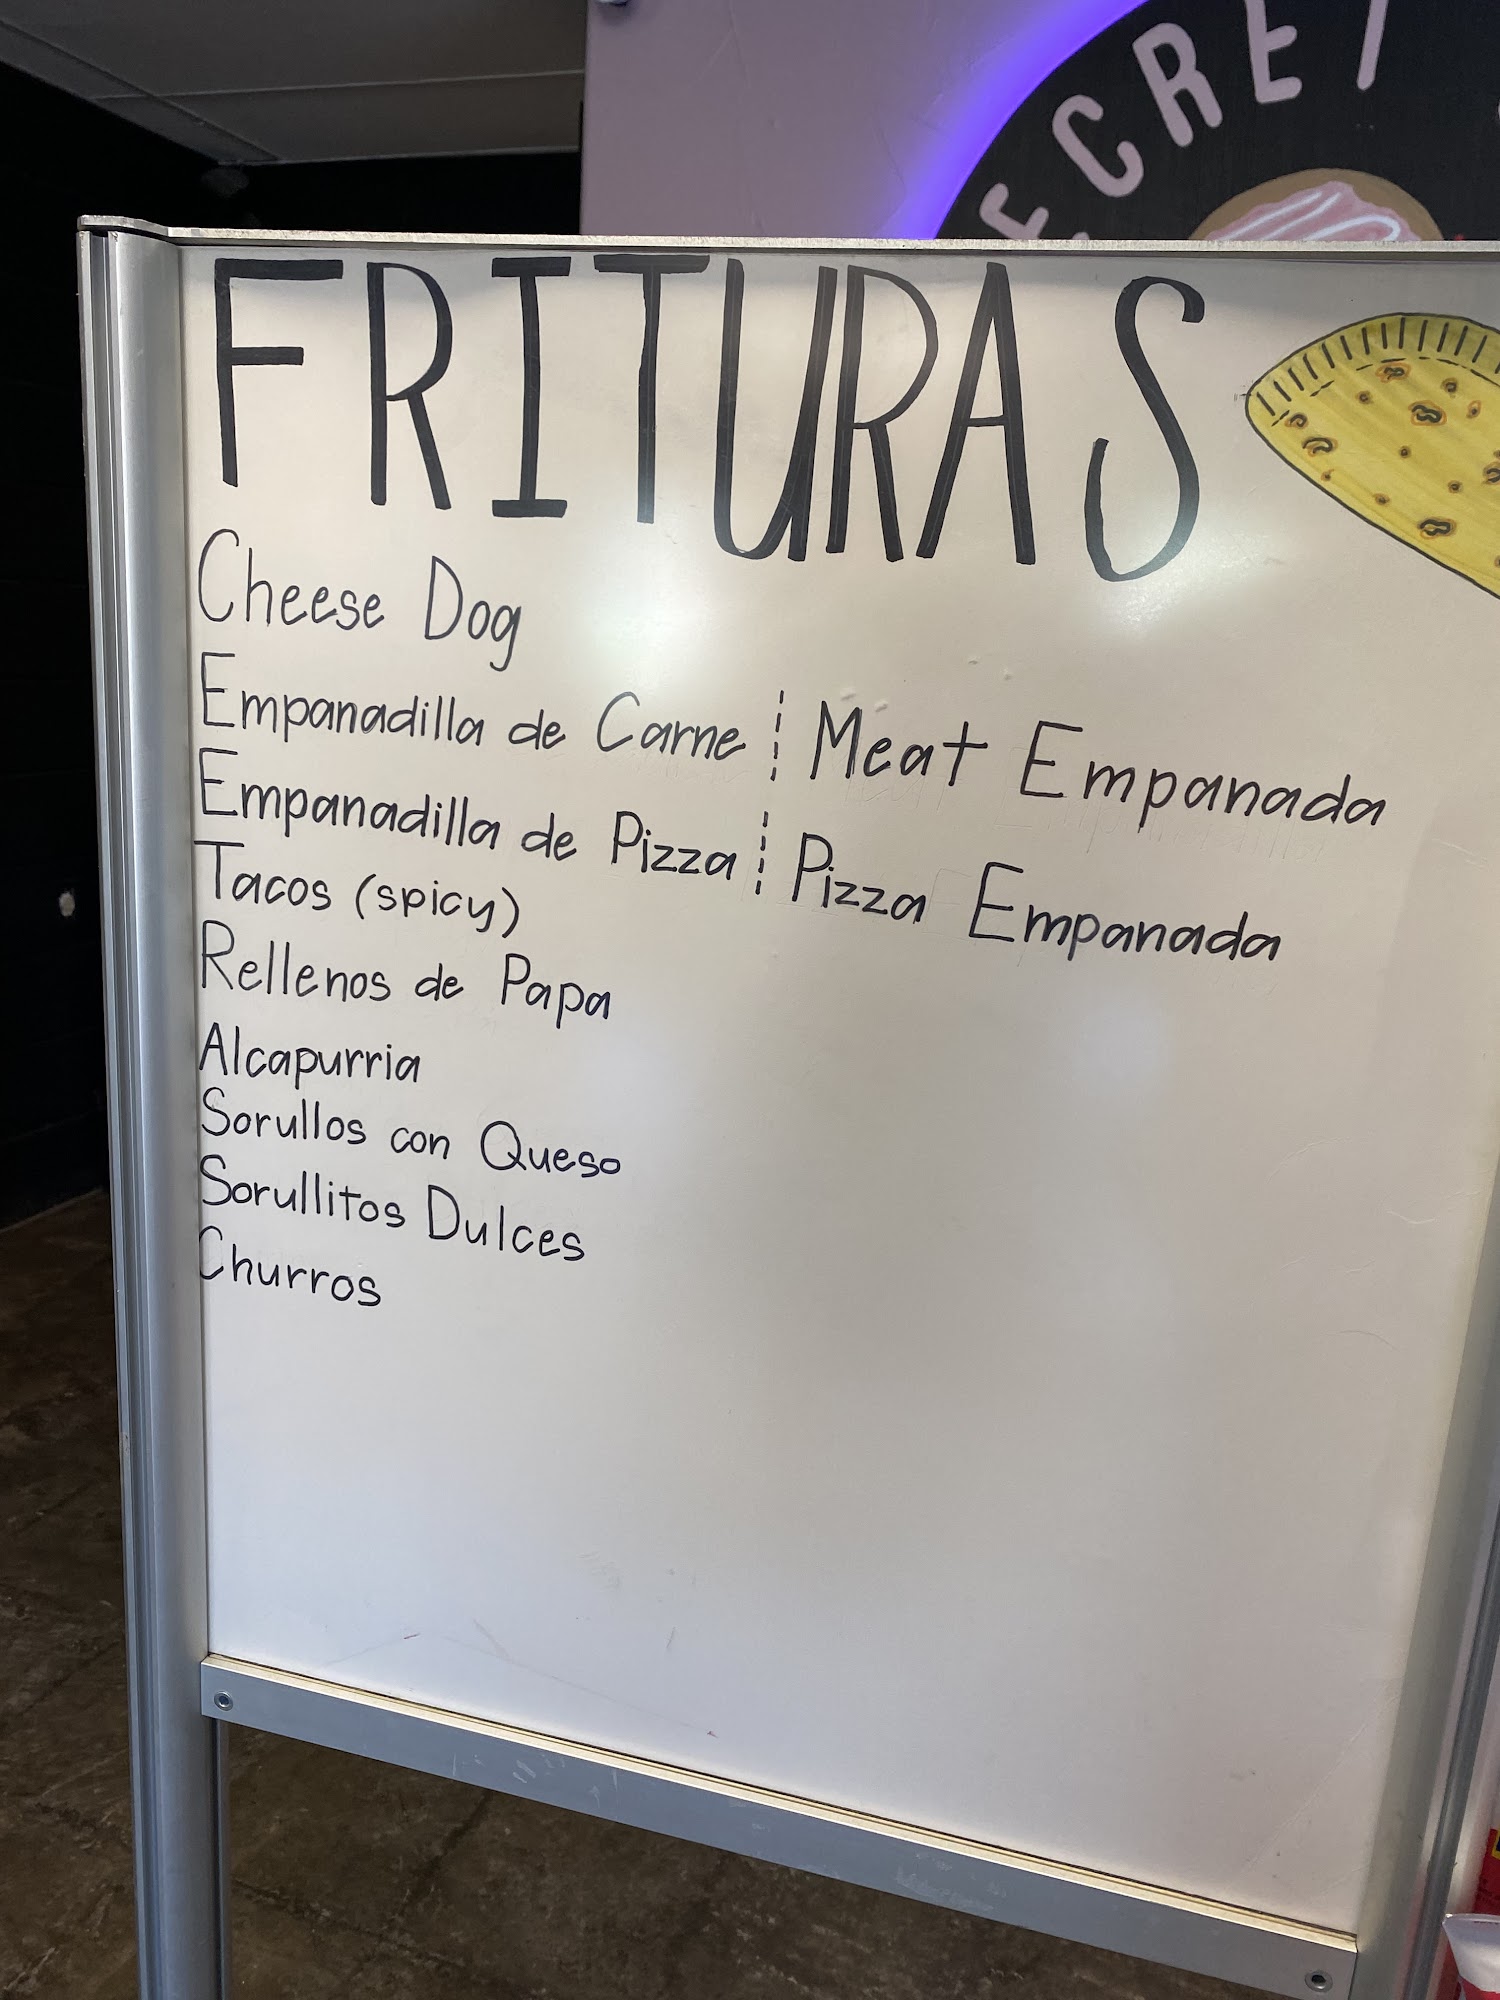 ECRET
FRITURAS
Cheese Dog
Empanadilla de Carne ¦ Meat Empanada
Empanadilla de Pizza ¦ Pizza Empanada
Tacos (spicy)
Rellenos de Papa
Alcapurria
Sorullos con Queso
Sorullitos Dulces
Churros